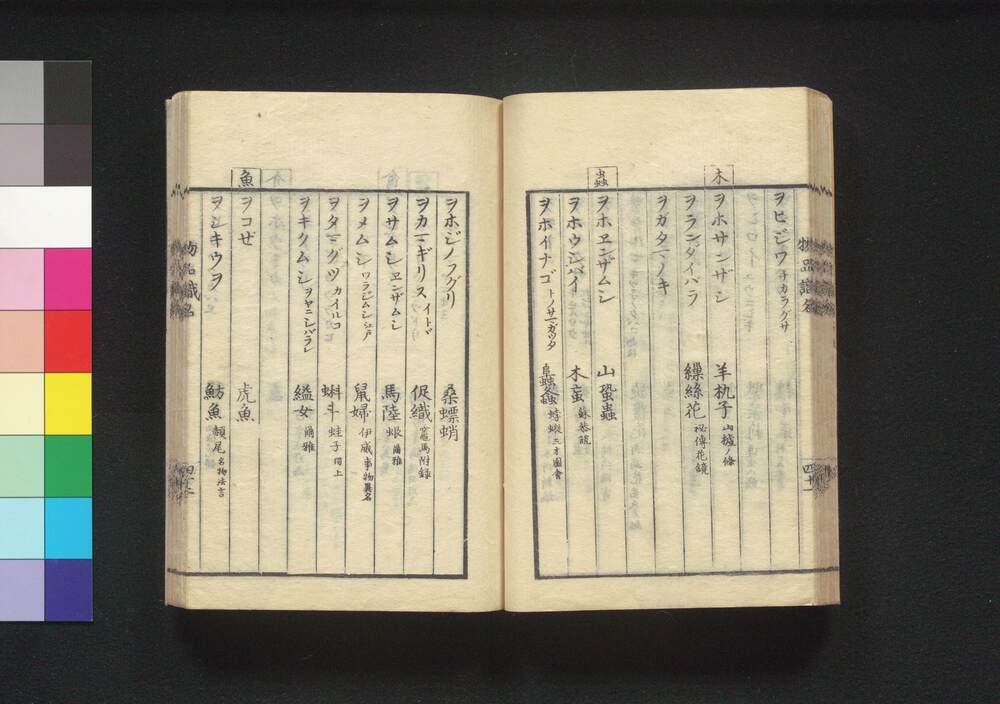 ヲヒジワ チカラグサ
木
ヲホサンザシ 羊杭子 山樝ノ條
ヲランダイバラ 繅絲花 祕傳花鏡
ヲガタマノキ
蟲
ヲホヱンザムシ 山蛩蟲
ヲホウシバイ 木䖟 蘇恭説
ヲホイナゴ トノサマガツタ 𧒂螽 蟒蝦 三才圖會
物品識名
ヲホジノフグリ 桑螵蛸
ヲカマギリス イトド 促織 竈馬附録
ヲサムシ ヱンザムシ 馬陸 蛝 爾雅
ヲメムシ ワラジムシ 江戸 鼠婦 伊威 事物異名
ヲタマグツ カイルコ 蝌斗 蛙子 同上
ヲキクムシ ヲヤニシバラレ 縊女 爾雅
魚
ヲコゼ 虎魚
ヲシキウヲ 魴魚 頳尾 名物法言
物品識名